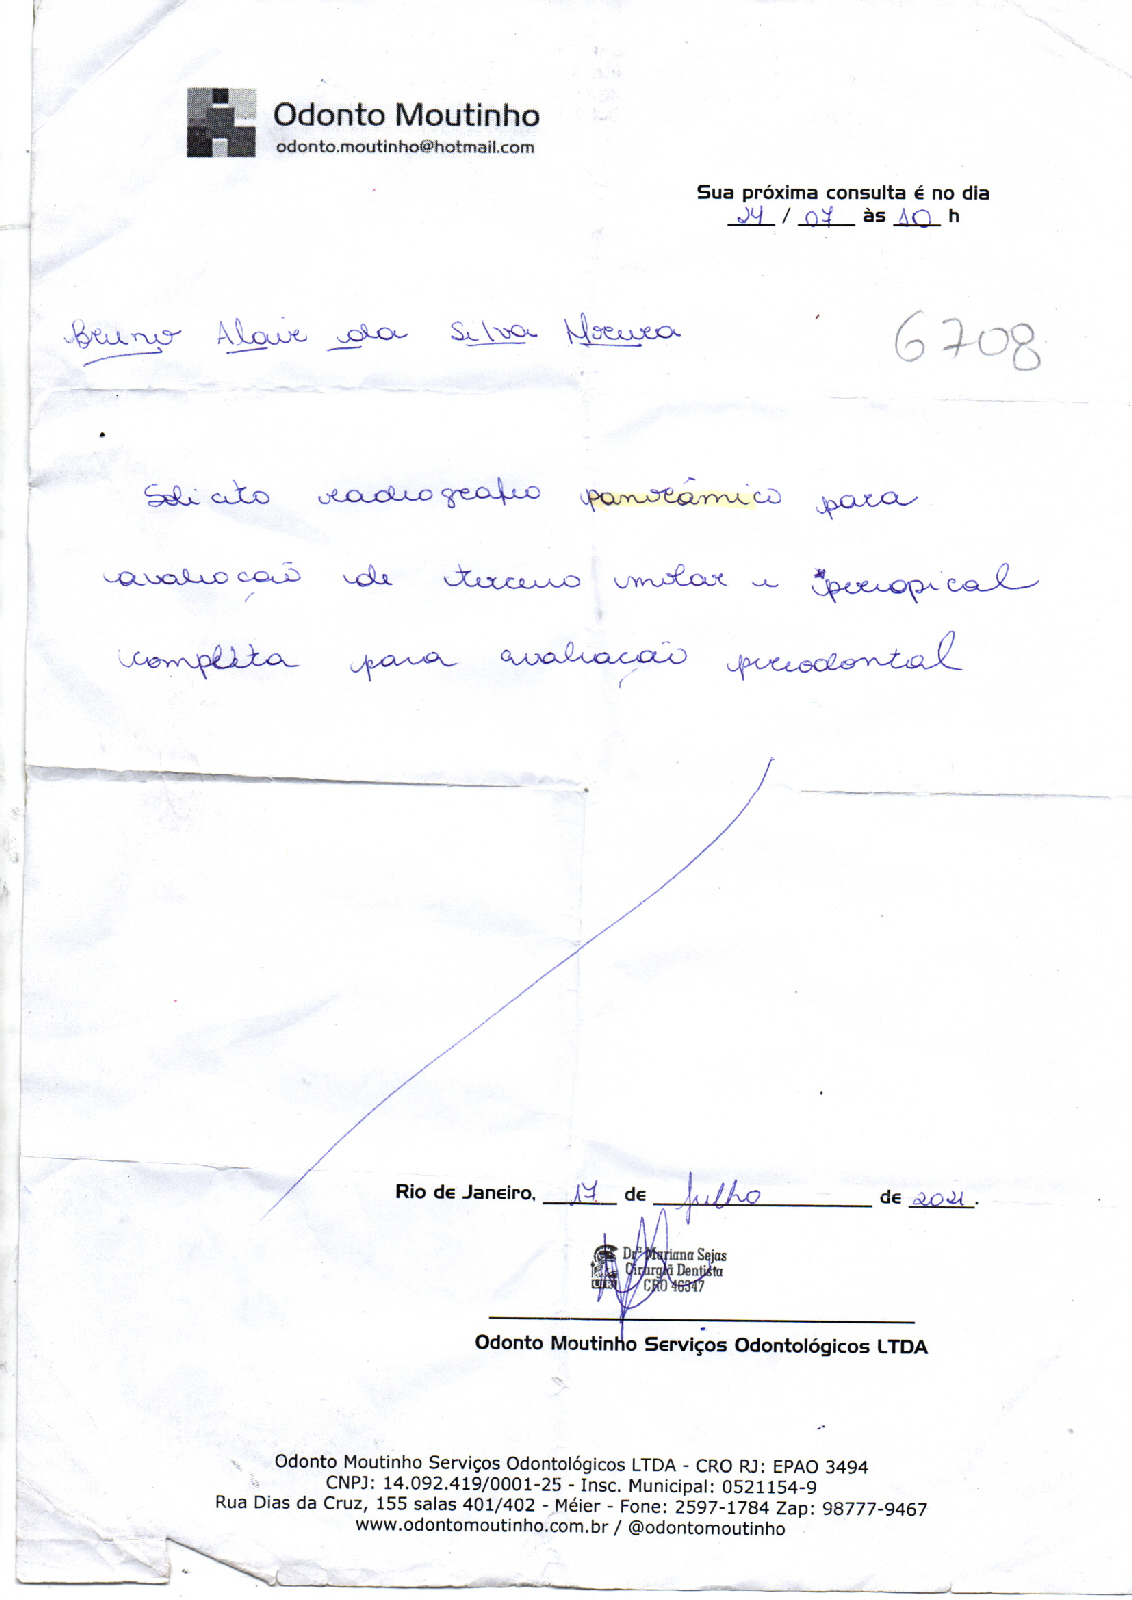 Odonto Moutinho
odonto.moutinho@hotmail.com
Sua próxima consulta é no dia
24 / 07 às 10 h
Bruno Alair da Silva Moura
6708
Solicito radiografia panorâmica para
avaliação de terceiro molar e periapical
completa para avaliação periodontal
Rio de Janeiro, 17 de julho de 2021.
Drª Mariana Sejas
Cirurgiã Dentista
CRO 46347
Odonto Moutinho Serviços Odontológicos LTDA
Odonto Moutinho Serviços Odontológicos LTDA - CRO RJ: EPAO 3494
CNPJ: 14.092.419/0001-25 - Insc. Municipal: 0521154-9
Rua Dias da Cruz, 155 salas 401/402 - Méier - Fone: 2597-1784 Zap: 98777-9467
www.odontomoutinho.com.br / @odontomoutinho